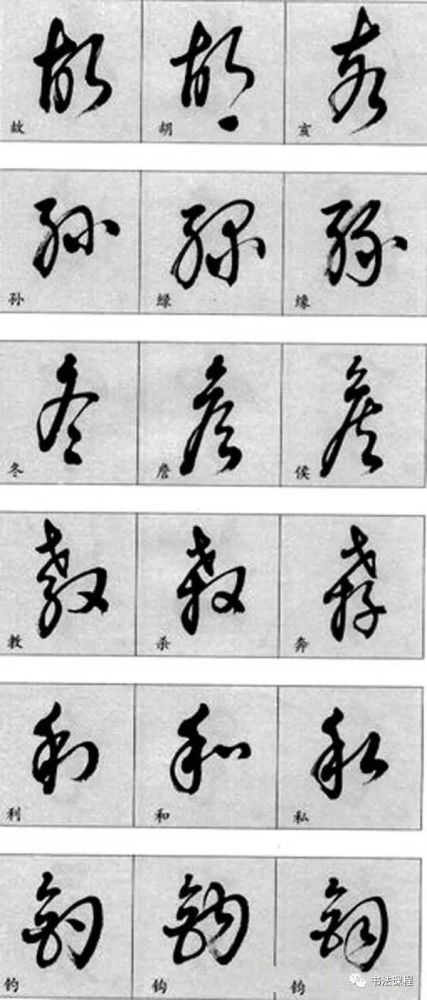 故 胡 亥
孙 绿 缘
冬 詹 侯
教 杀 奔
利 和 私
钓 钩 钧
书法课程